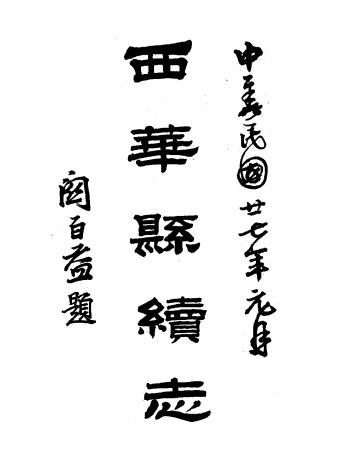 中華民國廿七年元月
西華縣續志
關百益題